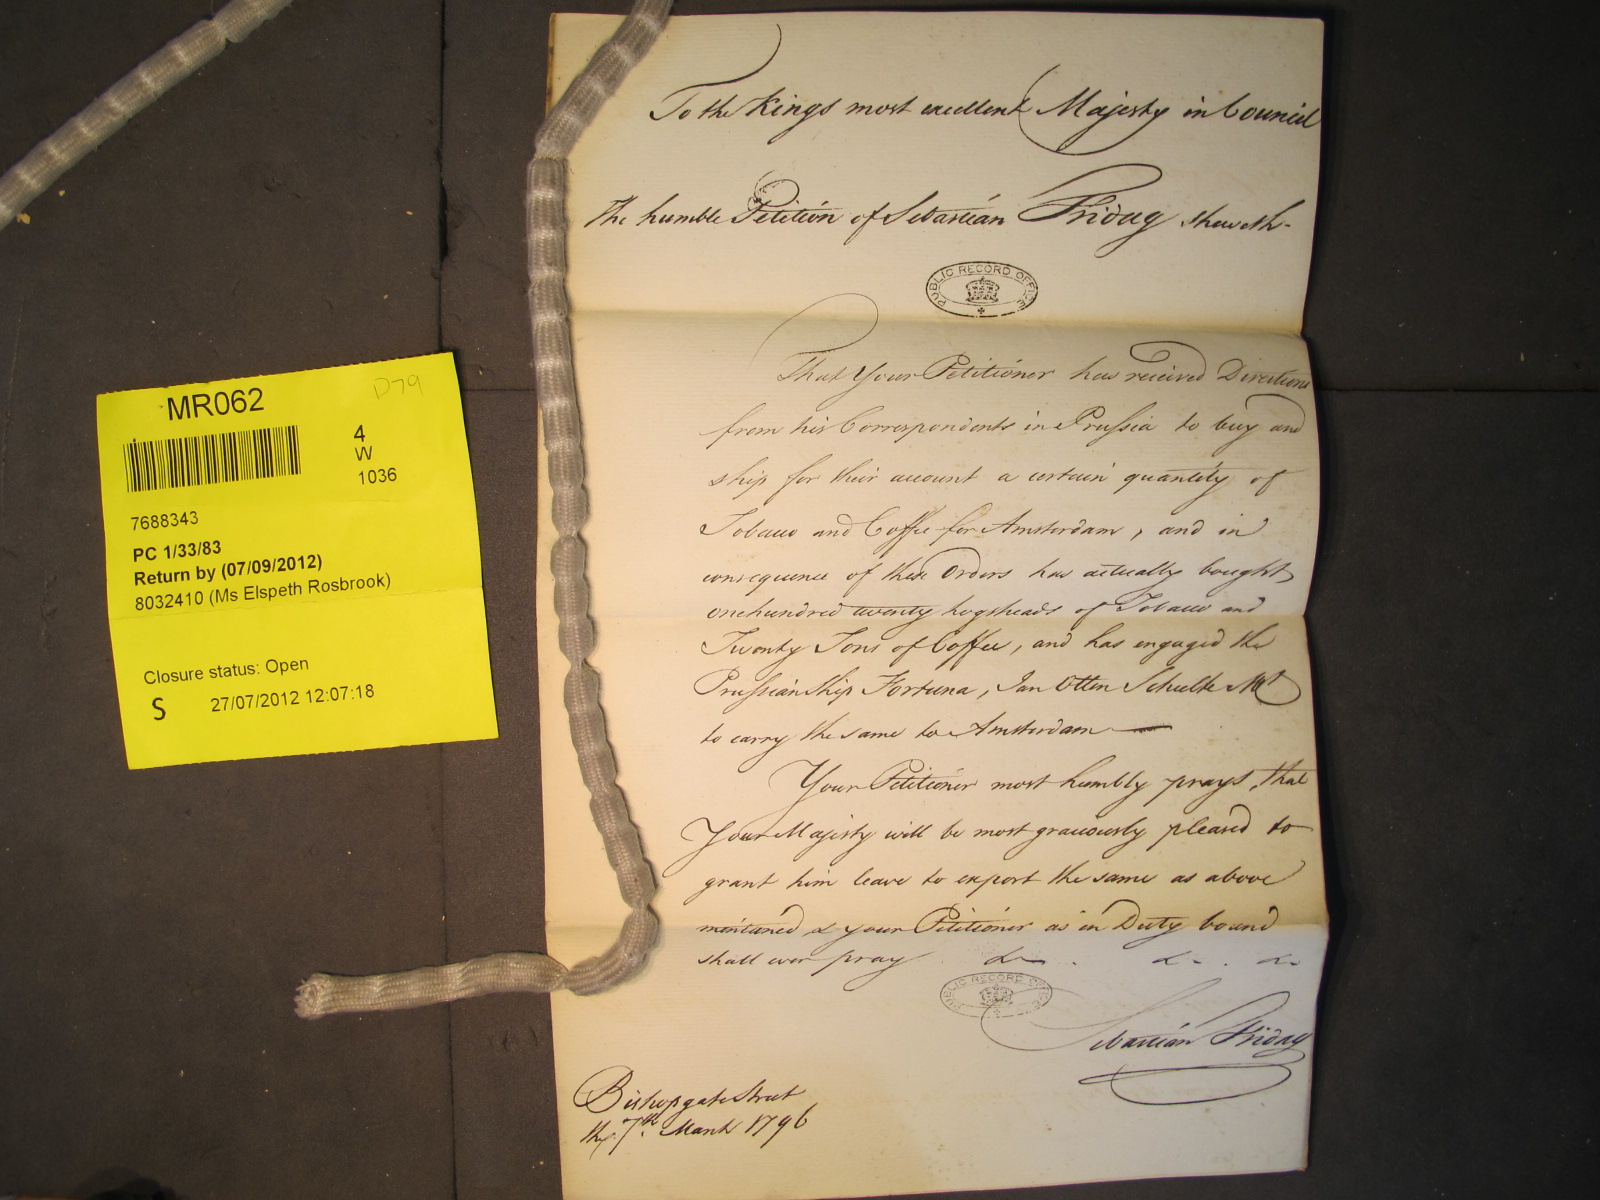 To the Kings most excellent Majesty in Council
The humble Petition of Sebastian Friday sheweth-
PUBLIC RECORD OFFICE
That Your Petitioner has received Directions
from his Correspondents in Prussia to buy and
ship for their account a certain quantity of
Tobacco and Coffee for Amsterdam, and in
consequence of these Orders has actually bought
onehundred twenty hogsheads of Tobacco and
Twenty Tons of Coffee, and has engaged the
Prussian Ship Fortuna, Jan Otten Schulte Mr
to carry the same to Amsterdam
Your Petitioner most humbly prays, that
Your Majesty will be most graciously pleased to
grant him leave to export the same as above
mentioned & your Petitioner as in Duty bound
shall ever pray &c. &c. &c.
PUBLIC RECORD OFFICE
Sebastian Friday
Bishopgate Street
the 7th. March 1796
MR062
D79
4
W
1036
7688343
PC 1/33/83
Return by (07/09/2012)
8032410 (Ms Elspeth Rosbrook)
Closure status: Open
S 27/07/2012 12:07:18